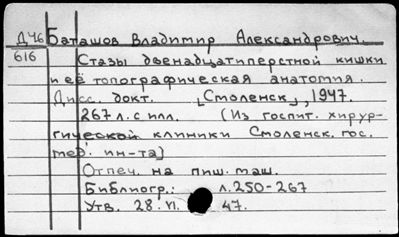 Д46 Баташов Владимир Александрович.
616 Стазы двенадцатиперстной кишки
и её топографическая анатомия.
Дисс. докт. [Смоленск], 1947.
267 л. с илл. (Из госпит. хирур-
гической клиники Смоленск. гос.
мед. ин-та)
Отпеч. на пиш. маш.
Библиогр.: л. 250-267
Утв. 28. VI. 47.